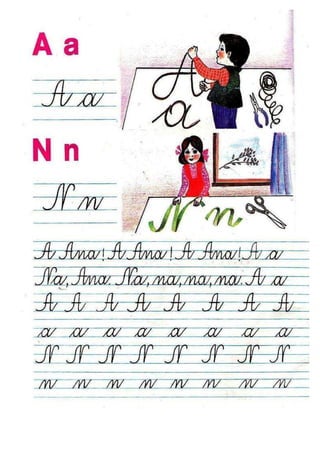 A a
A a
A a
N n
N n
N n
A Ana! A Ana! A Ana! A a
Na, Ana. Na, na, na, na. A a
A A A A A A A A
a a a a a a a a
N N N N N N N N
n n n n n n n n